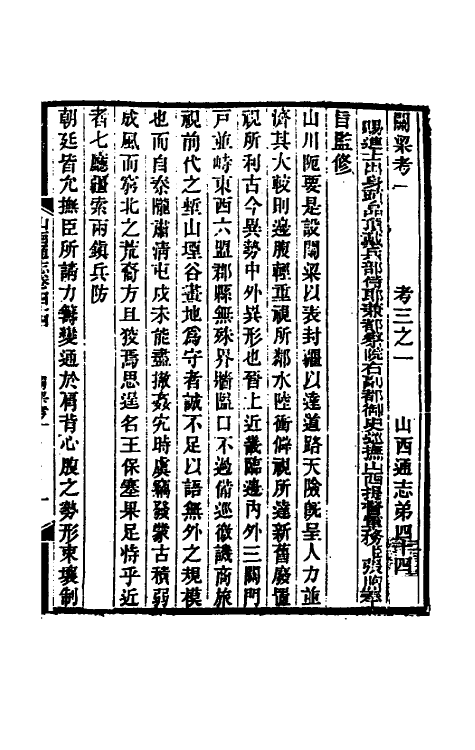 關梁考一　考三之一　山西通志第四十四
賜進士出身頭品頂戴兵部侍郎兼都察院右副都御史巡撫山西提督軍務張煦奉
旨監修
山川阨要是設關梁以表封疆以達道路天險旣呈人力並
濟其大較則邊腹輕重視所鄰水陸衝僻視所達新舊廢置
視所利古今異勢中外異形也晉上近畿臨邊內外三關門
戸並峙東西六盟郡縣無殊界墻隘口不過備巡徼譏商旅
視前代之塹山堙谷畫地爲守者誠不足以語無外之規模
也而自秦隴肅清屯戍未能盡撤姦宄時虞竊發蒙古積弱
成風而窮北之荒裔方且狡焉思逞名王保塞果足恃乎近
者七廳疆索兩鎮兵防
朝廷皆允撫臣所請力籌變通於肩背心腹之勢形束壤制
山西通志卷四十四　關梁考一　一